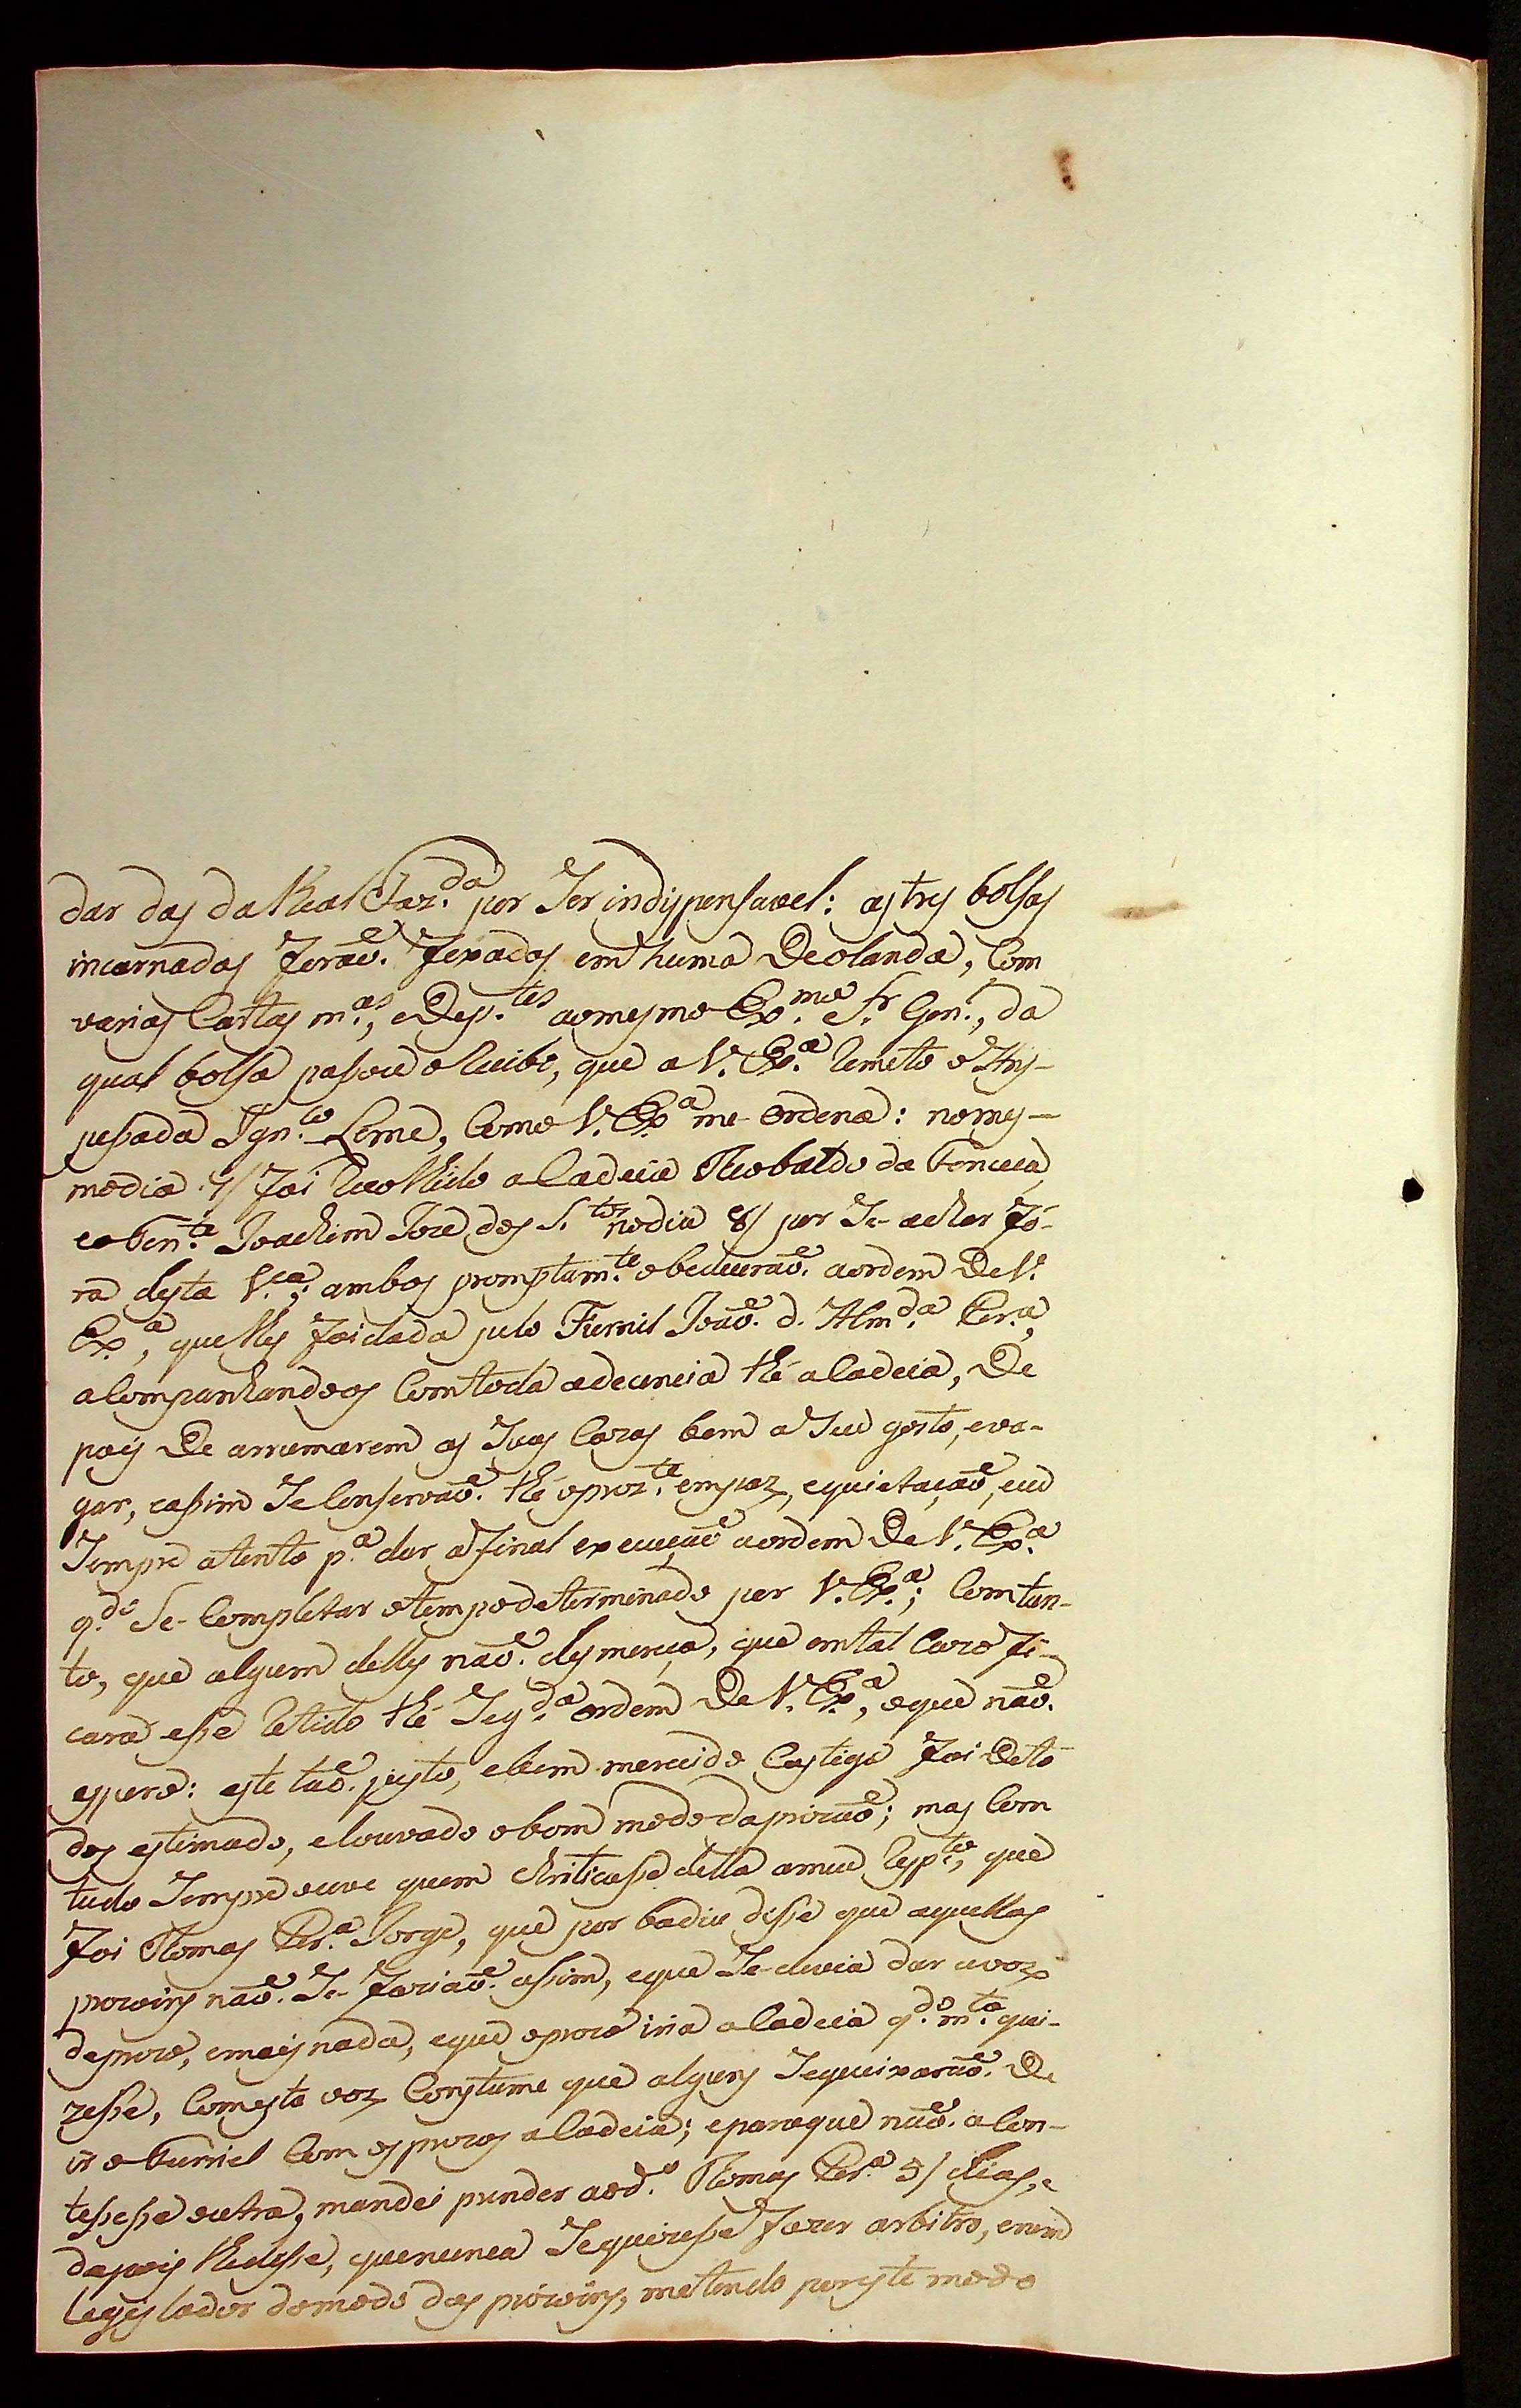 dar das da Real Faz.da por Ser indispensavel: as tres bolsas
incarnadas forão fexadas em huma De olanda, Com
varias Cartas m.as, e Desp.tes ao mesmo Ex.mo Sr. Gen.l, da
qual bolsa passou o Recibo, que a V. Ex.a Remeto o Ans-
pessada Ign.co Leme, Como V. Ex.a me ordena: no mes-
mo dia 7/ foi Recolhido a Cadeia Theobaldo da Fonceca,
e o Ten.te Joachim Joze dos S.tos no dia 8/ por Se achar fó-
ra desta V.ca; ambos promptam.te obedecerão a ordem De V.
Ex.a, que lhes foi dada pelo Furriel João d. Alm.da Per.a,
aCompanhandoos Com toda a decencia thé a Cadeia, De
pois De arrumarem as Suas Cazas bem a Seu gosto, e va-
gar, e assim Se Conservão thé o prez.te em paz, e quietação, eeu
Sempre atento p.a dar a final execução a ordem De V. Ex.a
q.do Se Completar o tempo determinado por V. Ex.a; Com tan-
to, que algum delles não desmereça, que em tal Cazo fi-
cará esse Retido thé Seg.da ordem De V. Ex.a, o que não
espero: este tão justo, e bem merecido Castigo foi De to
dos estimado, e louvado o bom modo da prizão; mas Com
tudo Sempre ouve quem Chriticasse della a meu Resp.to, que
foi Thomas Per.a Jorge, que por badio disse que aquellas
prizoins não Se farião assim, e que Se devia dar a voz
de prezo, e mais nada, e que o prezo iria a Cadeia q.do m.to qui-
zesse, Com esta voz Constume que alguns Se queixarão De
ir o Furriel Com os prezos a Cadeia; e para que não aCon-
tessesse outra, mandei prender ao d.o Thomas Per.a 3/ dias, e
depois lhe disse, que nunca Se quizesse fazer arbitro, e nem
Legislador do modo das prizoins, metendo por este modo